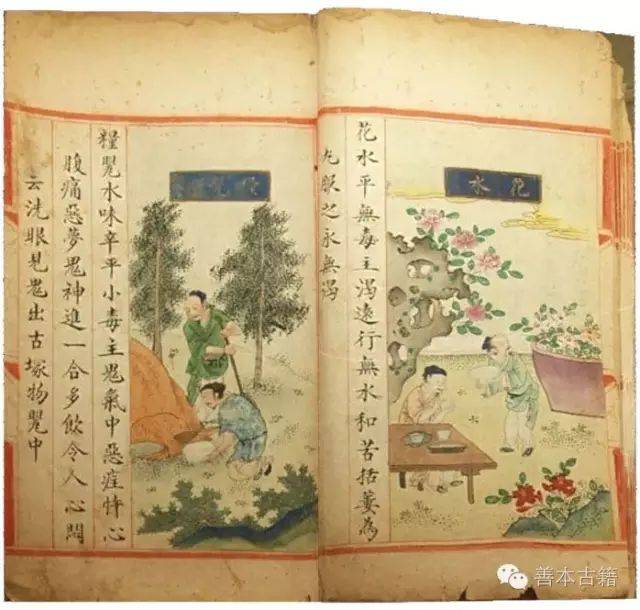 花水
花水平無毒主渴遠行無水和苦括蔞為
丸服之永無渴
糧罌水味辛平小毒主鬼氣中惡疰忤心
腹痛惡夢鬼神進一合多飲令人心悶
云洗眼見鬼出古塚物罌中
善本古籍